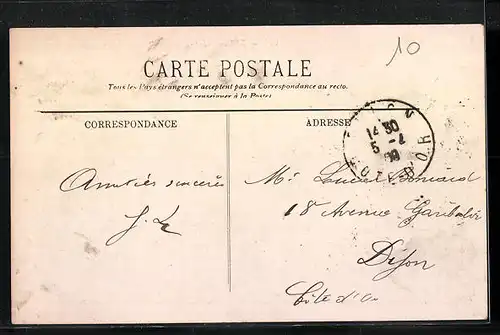 10
CARTE POSTALE
Tous les Pays étrangers n'acceptent pas la Correspondance au recto.
(Se renseigner à la Poste)
CORRESPONDANCE
ADRESSE
14 30
5 - 4
COTE-D'OR
Amitiés sincères
Mr Lucien
18 Avenue Garibaldi
Dijon
Côte d'Or